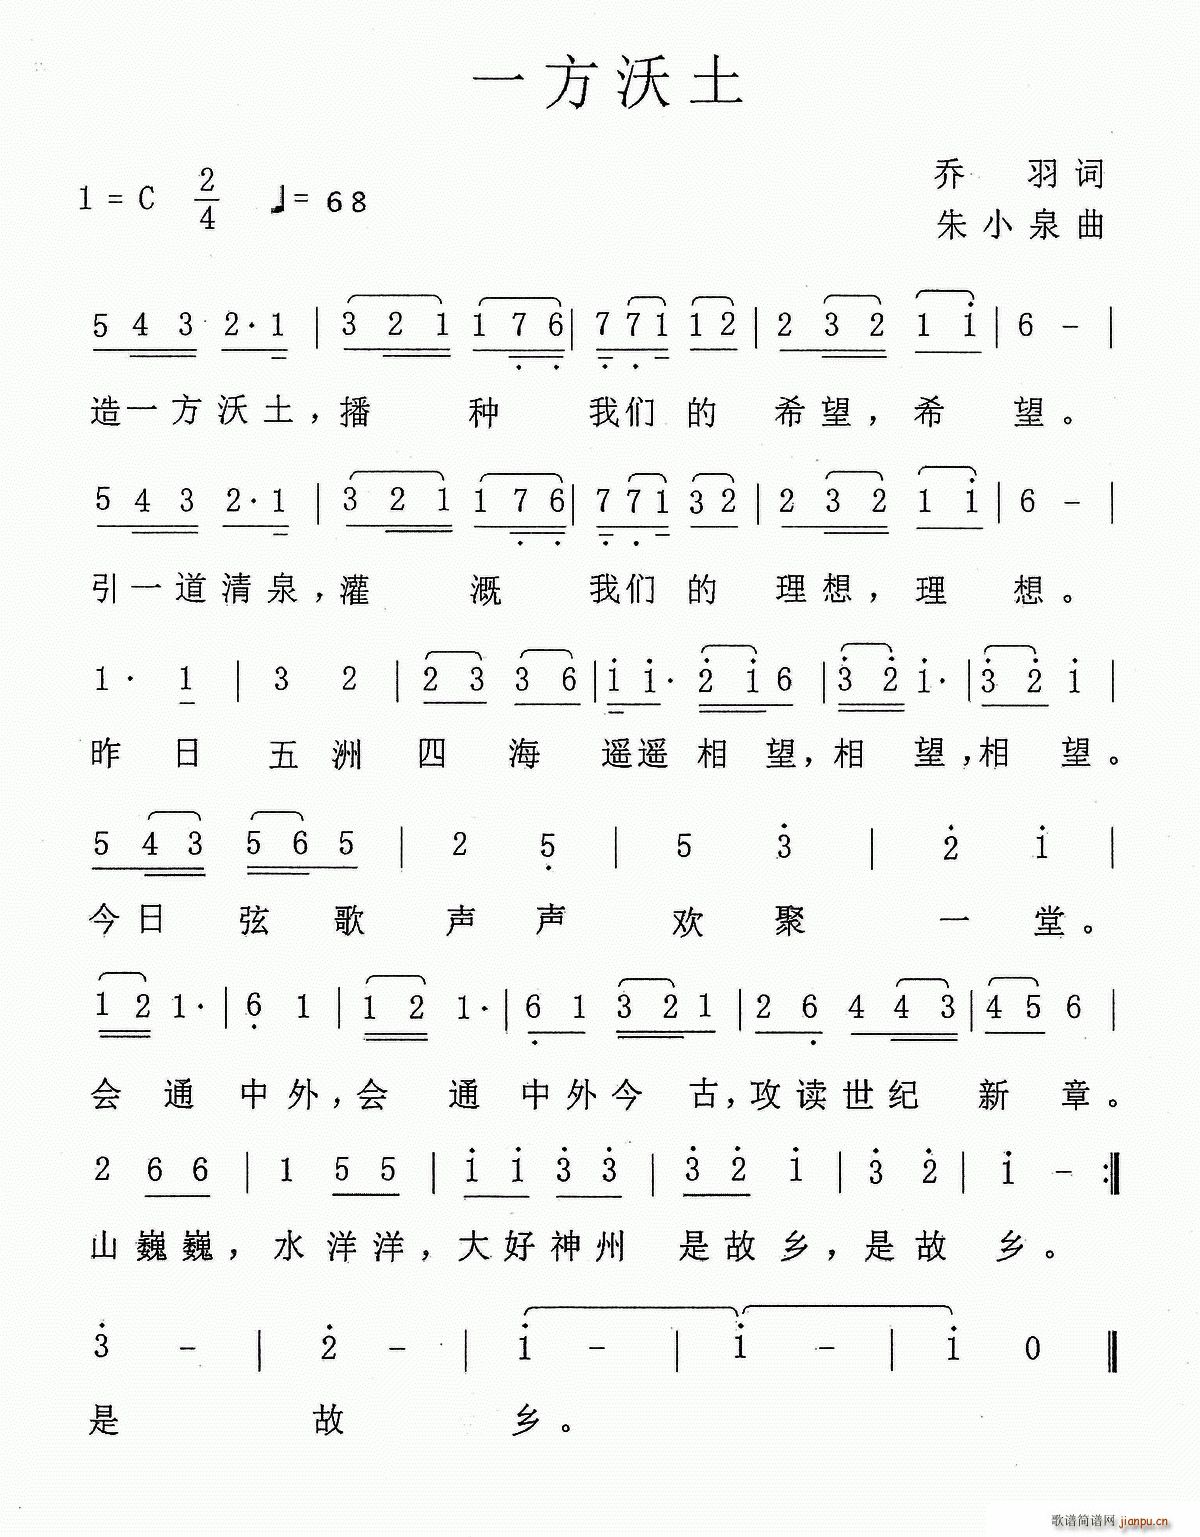 一方沃土
1=C 2/4 ♩=68
乔羽词
朱小泉曲
5 4 3 2· 1 | 3 2 1 1 7 6 | 7 7 1 1 2 | 2 3 2 1 1 | 6 - |
造一方沃土，播种我们的希望，希望。
5 4 3 2· 1 | 3 2 1 1 7 6 | 7 7 1 3 2 | 2 3 2 1 1 | 6 - |
引一道清泉，灌溉我们的理想，理想。
1· 1 | 3 2 | 2 3 3 6 | 1 1· 2 1 6 | 3 2 1· | 3 2 1 |
昨日五洲四海遥遥相望，相望，相望。
5 4 3 5 6 5 | 2 5 | 5 3 | 2 1 |
今日弦歌声声欢聚一堂。
1 2 1· | 6 1 | 1 2 1· | 6 1 3 2 1 | 2 6 4 4 3 | 4 5 6 |
会通中外，会通中外今古，攻读世纪新章。
2 6 6 | 1 5 5 | 1 1 3 3 | 3 2 1 | 3 2 | 1 - :‖
山巍巍，水洋洋，大好神州是故乡，是故乡。
3 - | 2 - | 1 - | 1 - | 1 0 ‖
是故乡。
歌谱简谱网 jianpu.cn